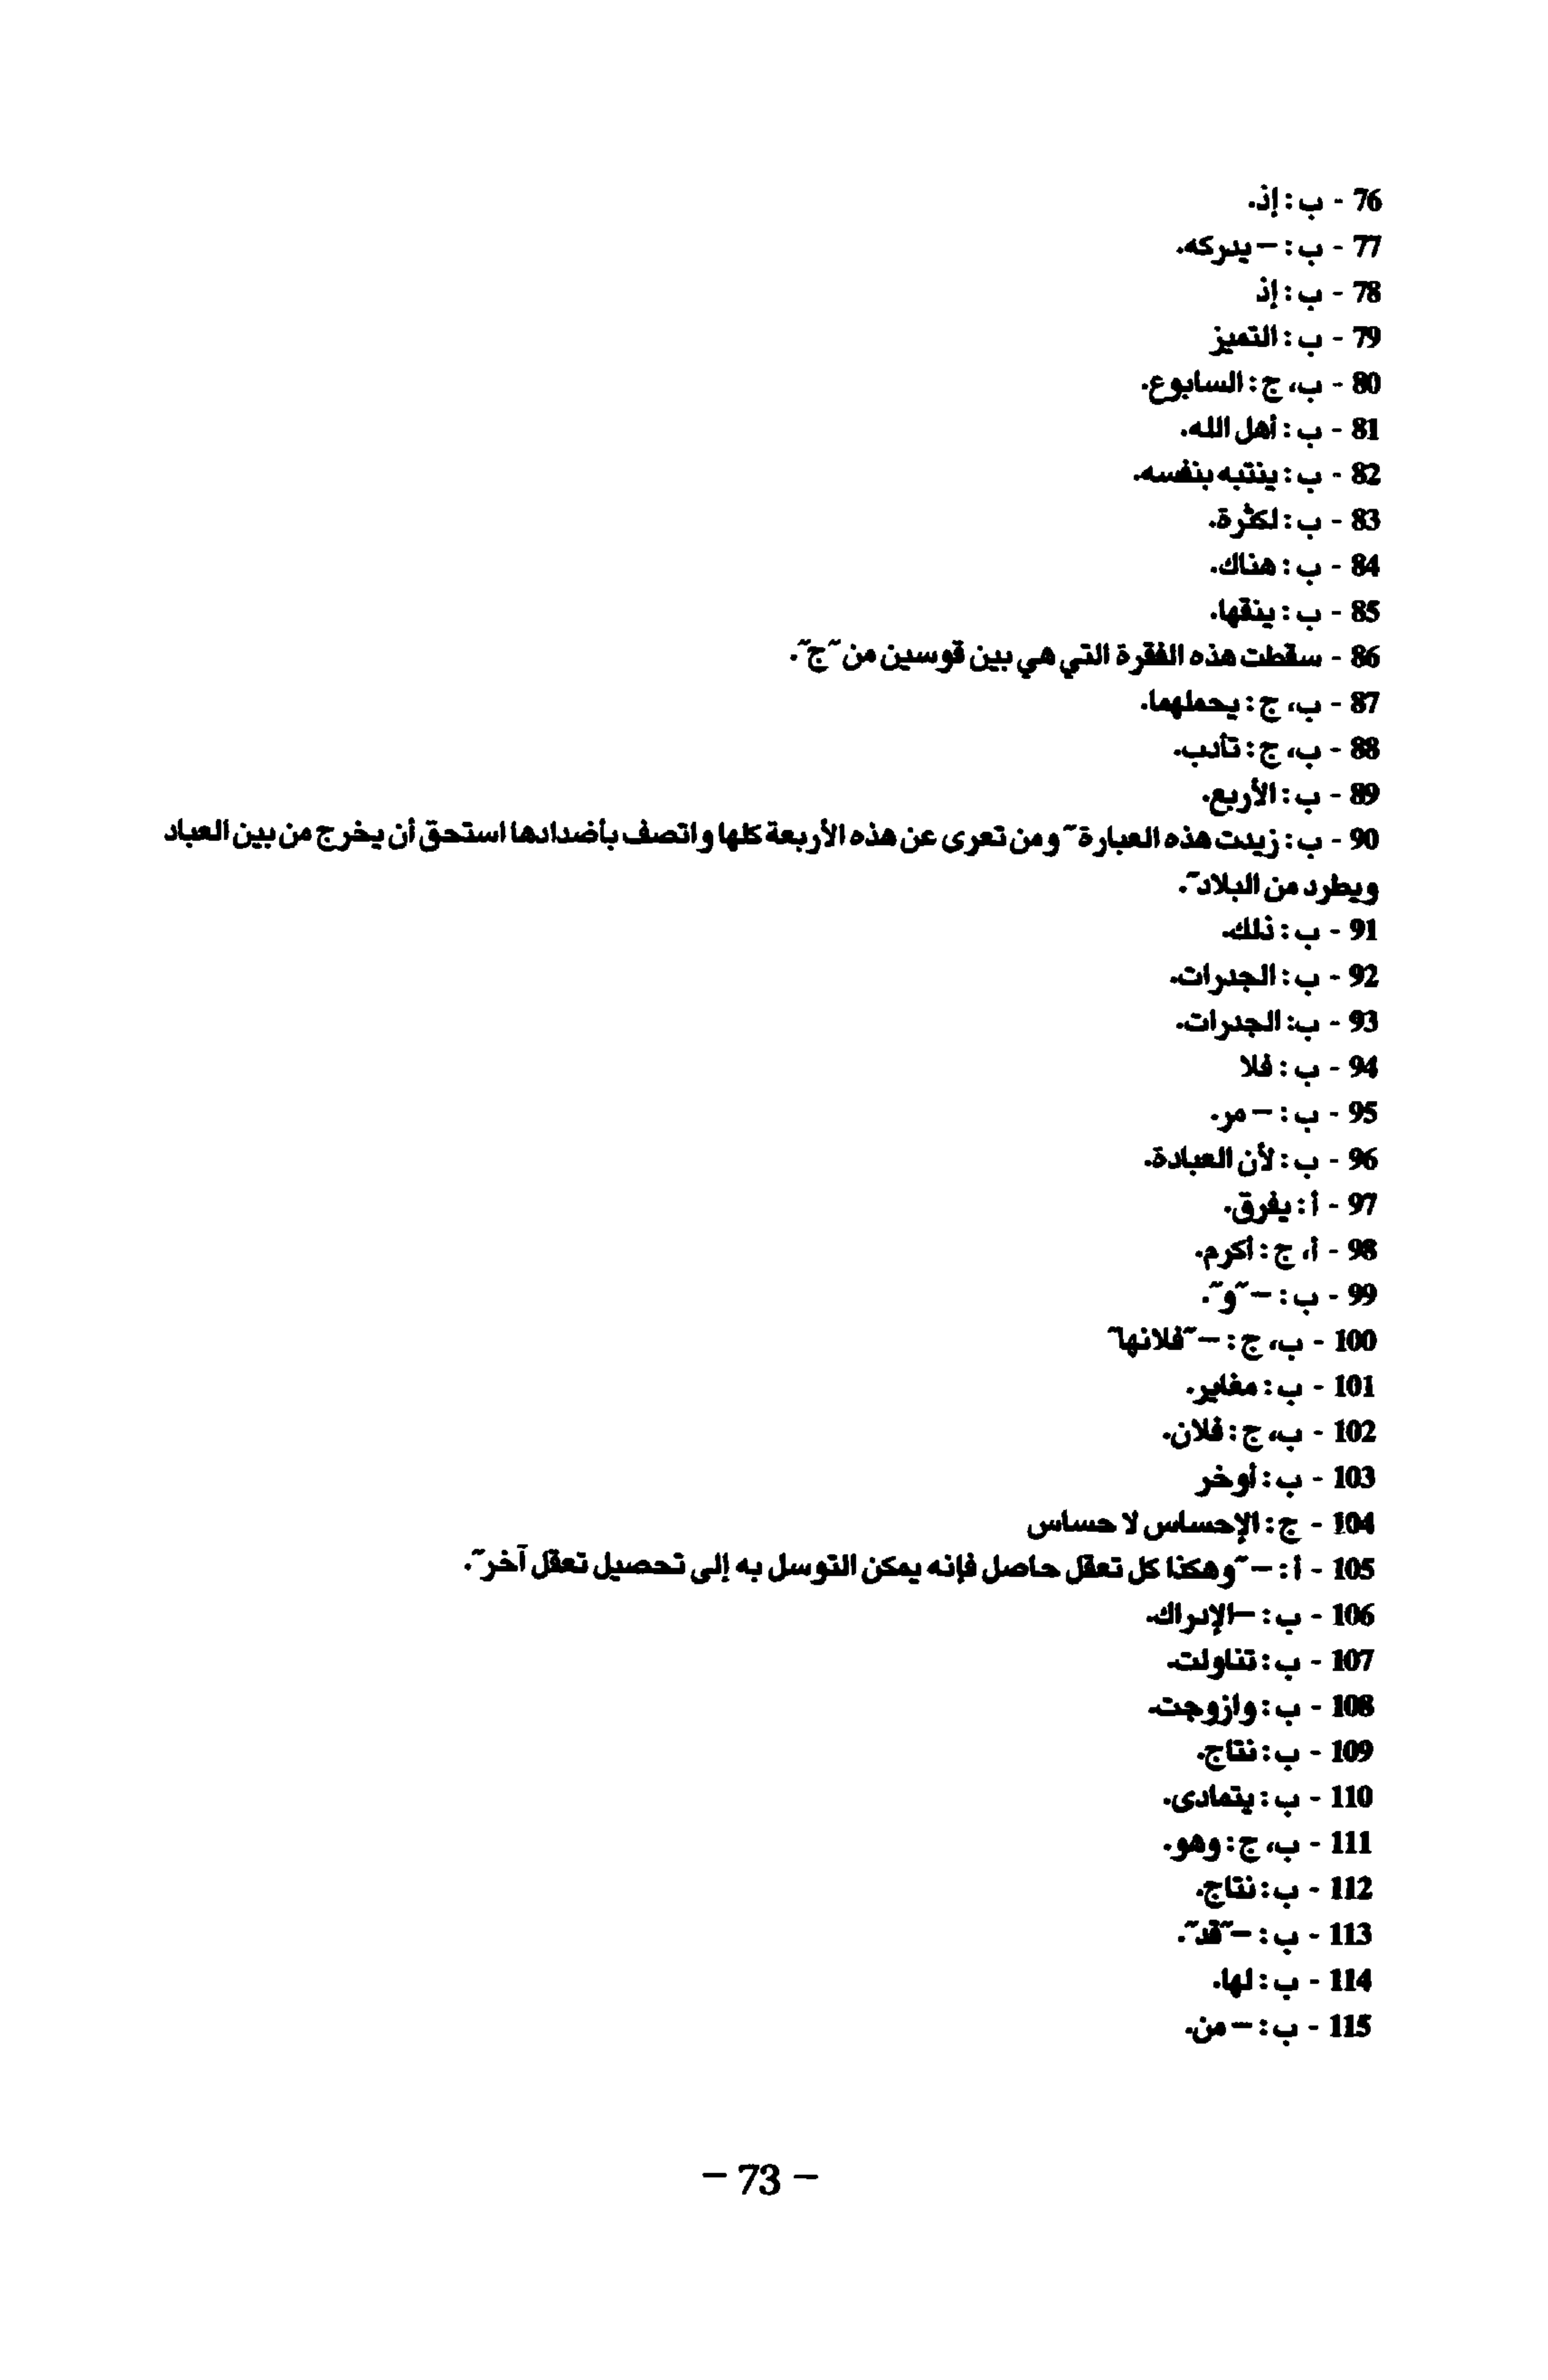 76 - ب : إذ.
77 - ب : – يدركه.
78 - ب : إذ
79 - ب : التميز
80 - ب، ج : السابوع.
81 - ب : أهل الله.
82 - ب : ينتبه بنفسه.
83 - ب : لكثرة.
84 - ب : هناك.
85 - ب : ينقها.
86 - سقطت هذه الفقرة التي هي بين قوسين من "ج".
87 - ب، ج : يحملهما.
88 - ب، ج : تأدب.
89 - ب : الأربع.
90 - ب : زيدت هذه العبارة "ومن تعرى عن هذه الأربعة كلها واتصف بأضدادها استحق أن يخرج من بين العباد
ويطرد من البلاد".
91 - ب : ذلك.
92 - ب : الجدرات.
93 - ب: الجدرات.
94 - ب : فلا
95 - ب : – مر.
96 - ب : لأن العبادة.
97 - أ : يفرق.
98 - أ، ج : أكرم.
99 - ب : – "و".
100 - ب، ج : – "فلانها"
101 - ب : مغاير.
102 - ب، ج : فلان.
103 - ب : أوخر
104 - ج : الإحساس لا حساس
105 - أ : – "وهكذا كل تعقل حاصل فإنه يمكن التوسل به إلى تحصيل تعقل آخر".
106 - ب : –الإدراك.
107 - ب : تناولت.
108 - ب : وازوجت.
109 - ب : نتاج.
110 - ب : يتمادى.
111 - ب، ج : وهو.
112 - ب : نتاج.
113 - ب : –"قد".
114 - ب : لها.
115 - ب : – من.
– 73 –